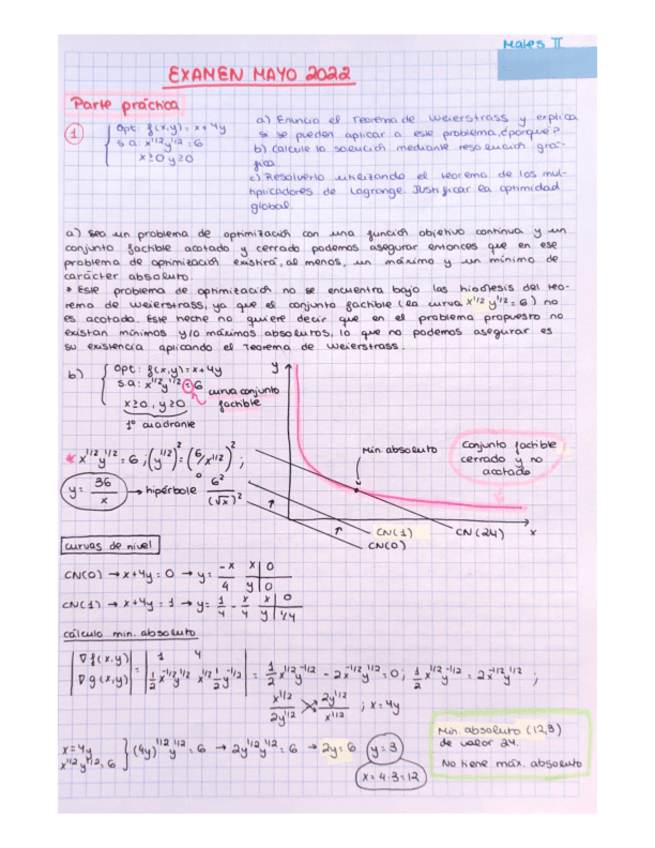 Mates II
EXAMEN MAYO 2022
Parte práctica
1 { Opt: f(x,y) = x + 4y
s.a: x^1/2 y^1/2 = 6
x≥0 y≥0
a) Enuncia el Teorema de Weierstrass y explica
si se pueden aplicar a este problema, ¿porqué?
b) Calcule la solución mediante resolución grá-
fica
c) Resolverlo utilizando el teorema de los mul-
tiplicadores de Lagrange. Justificar la optimidad
global.
a) Sea un problema de optimización con una función objetivo continua y un
conjunto factible acotado y cerrado podemos asegurar entonces que en ese
problema de optimización existirá, al menos, un máximo y un mínimo de
carácter absoluto.
* Este problema de optimización no se encuentra bajo las hipótesis del teo-
rema de Weierstrass, ya que el conjunto factible (la curva x^1/2 y^1/2 = 6) no
es acotado. Este hecho no quiere decir que en el problema propuesto no
existan mínimos y/o máximos absolutos, lo que no podemos asegurar es
su existencia aplicando el Teorema de Weierstrass.
b) { Opt: f(x,y) = x + 4y
s.a: x^1/2 y^1/2 = 6 curva conjunto
factible
x≥0, y≥0
1º cuadrante
y
Min. absoluto
Conjunto factible
cerrado y no
acotado
* x^1/2 y^1/2 = 6 ; (y^1/2)^2 = (6/x^1/2)^2 ;
y = 36/x → hipérbole 6^2/(√x)^2
CN(1)
CN(0)
CN(24)
x
curvas de nivel
CN(0) → x + 4y = 0 → y = -x/4 x | 0
y | 0
CN(1) → x + 4y = 1 → y = 1/4 - x/4 x | 0
y | 1/4
cálculo min. absoluto
|∇f(x,y)| |∇g(x,y)| = | 1 4 | | 1/2 x^-1/2 y^1/2 x^1/2 1/2 y^-1/2 | = 1/2 x^1/2 y^-1/2 - 2x^-1/2 y^1/2 = 0 ; 1/2 x^1/2 y^-1/2 = 2x^-1/2 y^1/2 ;
x^1/2 / 2y^1/2 2y^1/2 / x^1/2 ; x = 4y
x = 4y
x^1/2 y^1/2 = 6 } (4y)^1/2 y^1/2 = 6 → 2y^1/2 y^1/2 = 6 → 2y = 6 y = 3
x = 4·3 = 12
Min. absoluto (12,3)
de valor 24.
No tiene máx. absoluto